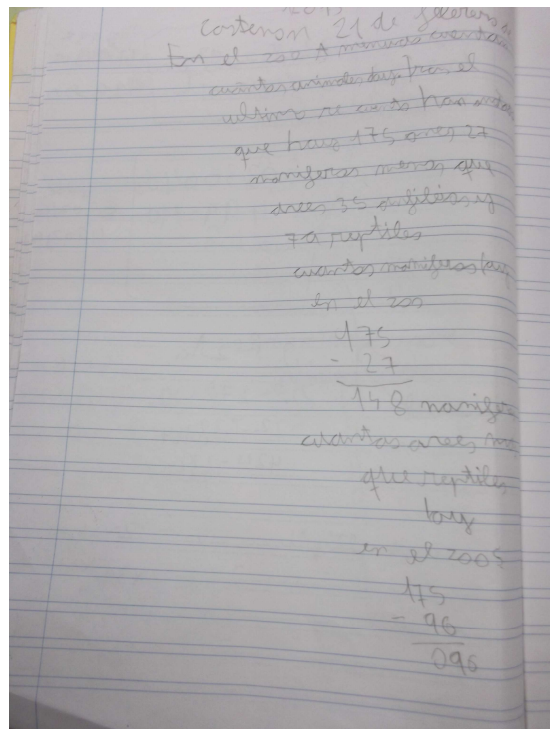 21 de
En el zoo A menudo cuentan
cuantos animales hay. Tras el
ultimo re cuento han
que hay 175 aves 27
mamiferos menos que
aves 35 anfibios y
79 reptiles
cuantos mamiferos hay
en el zoo
175
- 27
148 mamifer
cuantas aves m
que reptiles
hay
en el zoo?
175
- 96
096